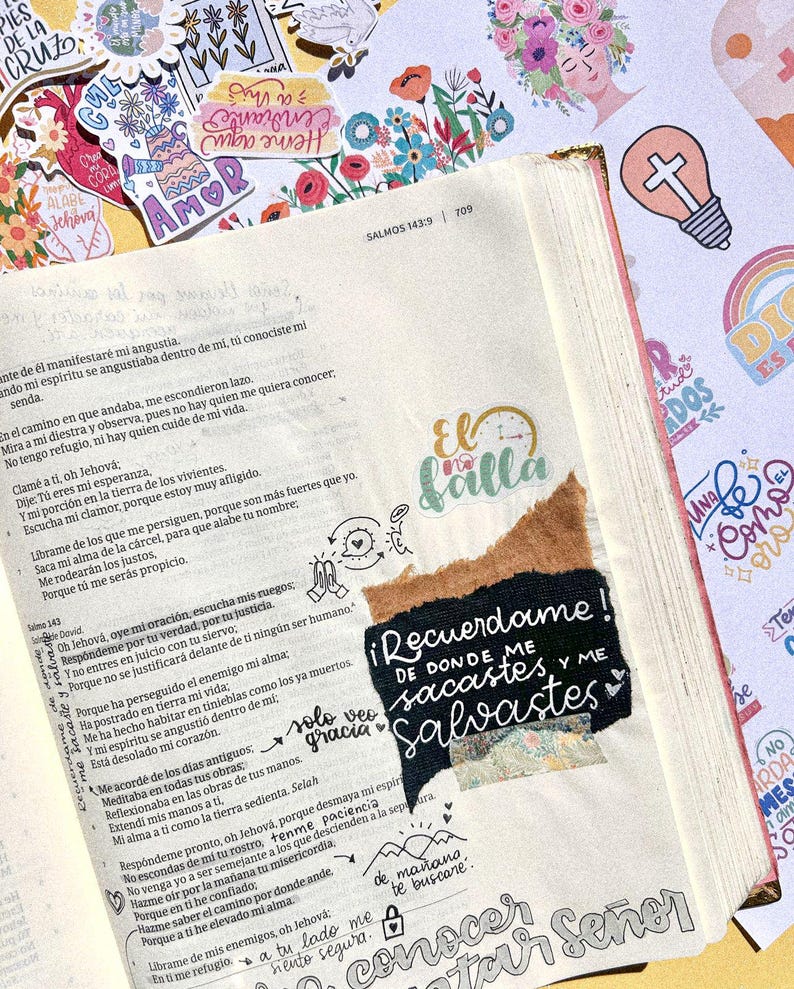 PIES
DE LA
CRUZ
AMOR
ALABE
a Jehová
Heme aquí
envíame
a mí
SALMOS 143:9 | 709
ante de él manifestaré mi angustia.
ando mi espíritu se angustiaba dentro de mí, tú conociste mi
senda.
En el camino en que andaba, me escondieron lazo.
Mira a mi diestra y observa, pues no hay quien me quiera conocer;
No tengo refugio, ni hay quien cuide de mi vida.
Clamé a ti, oh Jehová;
Dije: Tú eres mi esperanza,
Y mi porción en la tierra de los vivientes.
6 Escucha mi clamor, porque estoy muy afligido.
Líbrame de los que me persiguen, porque son más fuertes que yo.
7 Saca mi alma de la cárcel, para que alabe tu nombre;
Me rodearán los justos,
Porque tú me serás propicio.
El
no
falla
Salmo 143
Salmo de David.
Oh Jehová, oye mi oración, escucha mis ruegos;
Respóndeme por tu verdad, por tu justicia.
Y no entres en juicio con tu siervo;
Porque no se justificará delante de ti ningún ser humano.A
Porque ha perseguido el enemigo mi alma;
Ha postrado en tierra mi vida;
Me ha hecho habitar en tinieblas como los ya muertos.
Y mi espíritu se angustió dentro de mí;
Está desolado mi corazón.
solo veo
gracia
Me acordé de los días antiguos;
Meditaba en todas tus obras;
Reflexionaba en las obras de tus manos.
6 Extendí mis manos a ti,
Mi alma a ti como la tierra sedienta. Selah
7 Respóndeme pronto, oh Jehová, porque desmaya mi espíri
No escondas de mí tu rostro, tenme paciencia
No venga yo a ser semejante a los que descienden a la sepultura.
8 Hazme oír por la mañana tu misericordia,
Porque en ti he confiado;
Hazme saber el camino por donde ande,
Porque a ti he elevado mi alma.
9 Líbrame de mis enemigos, oh Jehová;
En ti me refugio. a tu lado me
siento segura.
Recuérdame de donde
me sacaste y salvaste
¡Recuerdame!
DE DONDE ME
sacastes, Y ME
Salvastes
de mañana
te buscaré.
conocer
Señor
DIOS
ES
UNA
fe
Como
EL
oro
NO